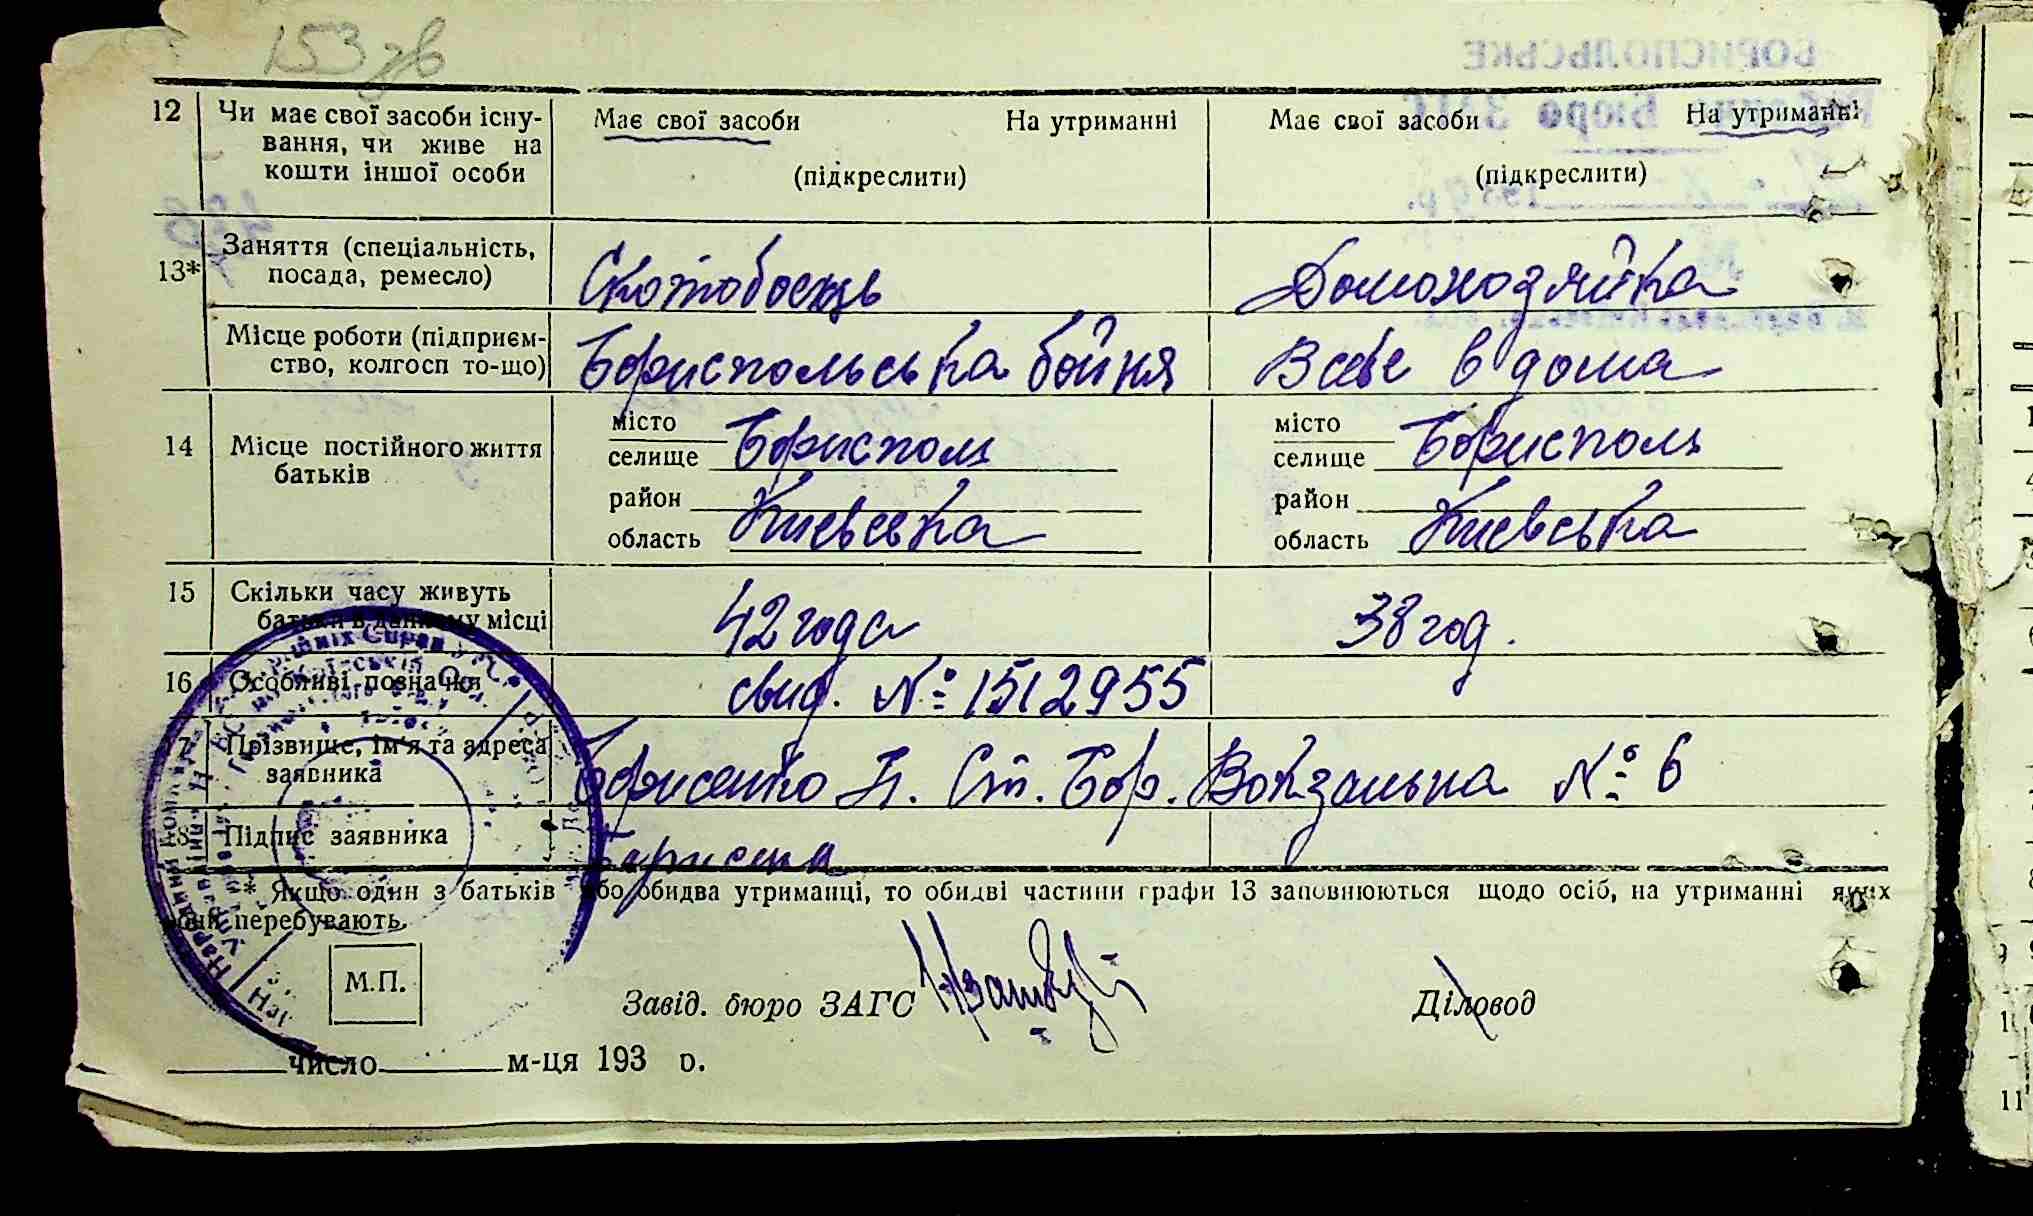 153 зв
12 Чи має свої засоби існування, чи живе на кошти іншої особи
Має свої засоби На утриманні
(підкреслити)
Має свої засоби На утриманні
(підкреслити)
13* Заняття (спеціальність, посада, ремесло)
Скотобоець
Домохозяйка
Місце роботи (підприємство, колгосп то-що)
Бориспольська бойня
В себе в дома
14 Місце постійного життя батьків
місто
селище Борисполь
район
область Киевська
місто
селище Борисполь
район
область Киевська
15 Скільки часу живуть батьки в данному місці
42 года
38 год.
16 Особливі позначки
свид. № 1512955
17 Прізвище, ім'я та адреса заявника
Борисенко П. Ст. Бор. Вокзальна № 6
18 Підпис заявника
* Якщо один з батьків або обидва утриманці, то обидві частини графи 13 заповнюються щодо осіб, на утриманні яких
вони перебувають.
М.П.
Завід. бюро ЗАГС
Діловод
число м-ця 193 р.